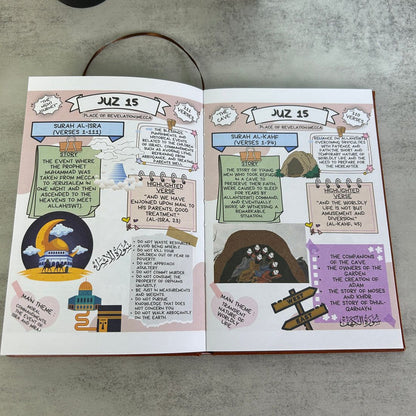 THE NIGHT JOURNEY
JUZ 15
111 VERSES
PLACE OF REVELATION:MECCA
SURAH AL-ISRA
(VERSES 1-111)
STORY
THE EVENT WHERE
THE PROPHET
MUHAMMAD WAS
TAKEN FROM MECCA
TO JERUSALEM IN
ONE NIGHT AND THEN
ASCENDED TO THE
HEAVENS TO MEET
ALLAH(SWT).
HIGHLIGHTED
VERSE
"AND WE HAVE
ENJOINED UPON MAN, TO
HIS PARENTS, GOOD
TREATMENT."
(AL-ISRA, 23)
DO NOT WASTE RESOURCES
DO NOT KILL YOUR
CHILDREN OUT OF FEAR OF
POVERTY
DO NOT APPROACH
ADULTERY
DO NOT COMMIT MURDER
DO NOT CONSUME THE
PROPERTY OF ORPHANS
UNJUSTLY
BE JUST IN MEASUREMENTS
AND WEIGHTS.
DO NOT PURSUE
KNOWLEDGE THAT DOES
NOT CONCERN YOU
DO NOT WALK ARROGANTLY
ON THE EARTH.
MAIN THEME
THE CAVE
JUZ 15
110 VERSES
PLACE OF REVELATION:MECCA
SURAH AL-KAHF
(VERSES 1-74)
STORY
THE STORY OF YOUNG
MEN WHO TOOK REFUGE
IN A CAVE TO
PRESERVE THEIR FAITH,
WERE CAUSED TO SLEEP
FOR YEARS BY
ALLAH(SWT)'S COMMAND,
AND EVENTUALLY
WOKE UP, WITNESSING A
REMARKABLE
SITUATION.
HIGHLIGHTED
VERSE
"AND THE WORLDLY
LIFE IS NOT BUT
AMUSEMENT AND
DIVERSION."
(AL-KAHF, 45)
THE COMPANIONS
OF THE CAVE
THE OWNERS OF THE
GARDEN
THE CREATION OF
ADAM
THE STORY OF MOSES
AND KHIDR
THE STORY OF DHUL-
QARNAYN
WEST
EAST
MAIN THEME
TRANSIENT
NATURE OF
WORLDLY
LIFE